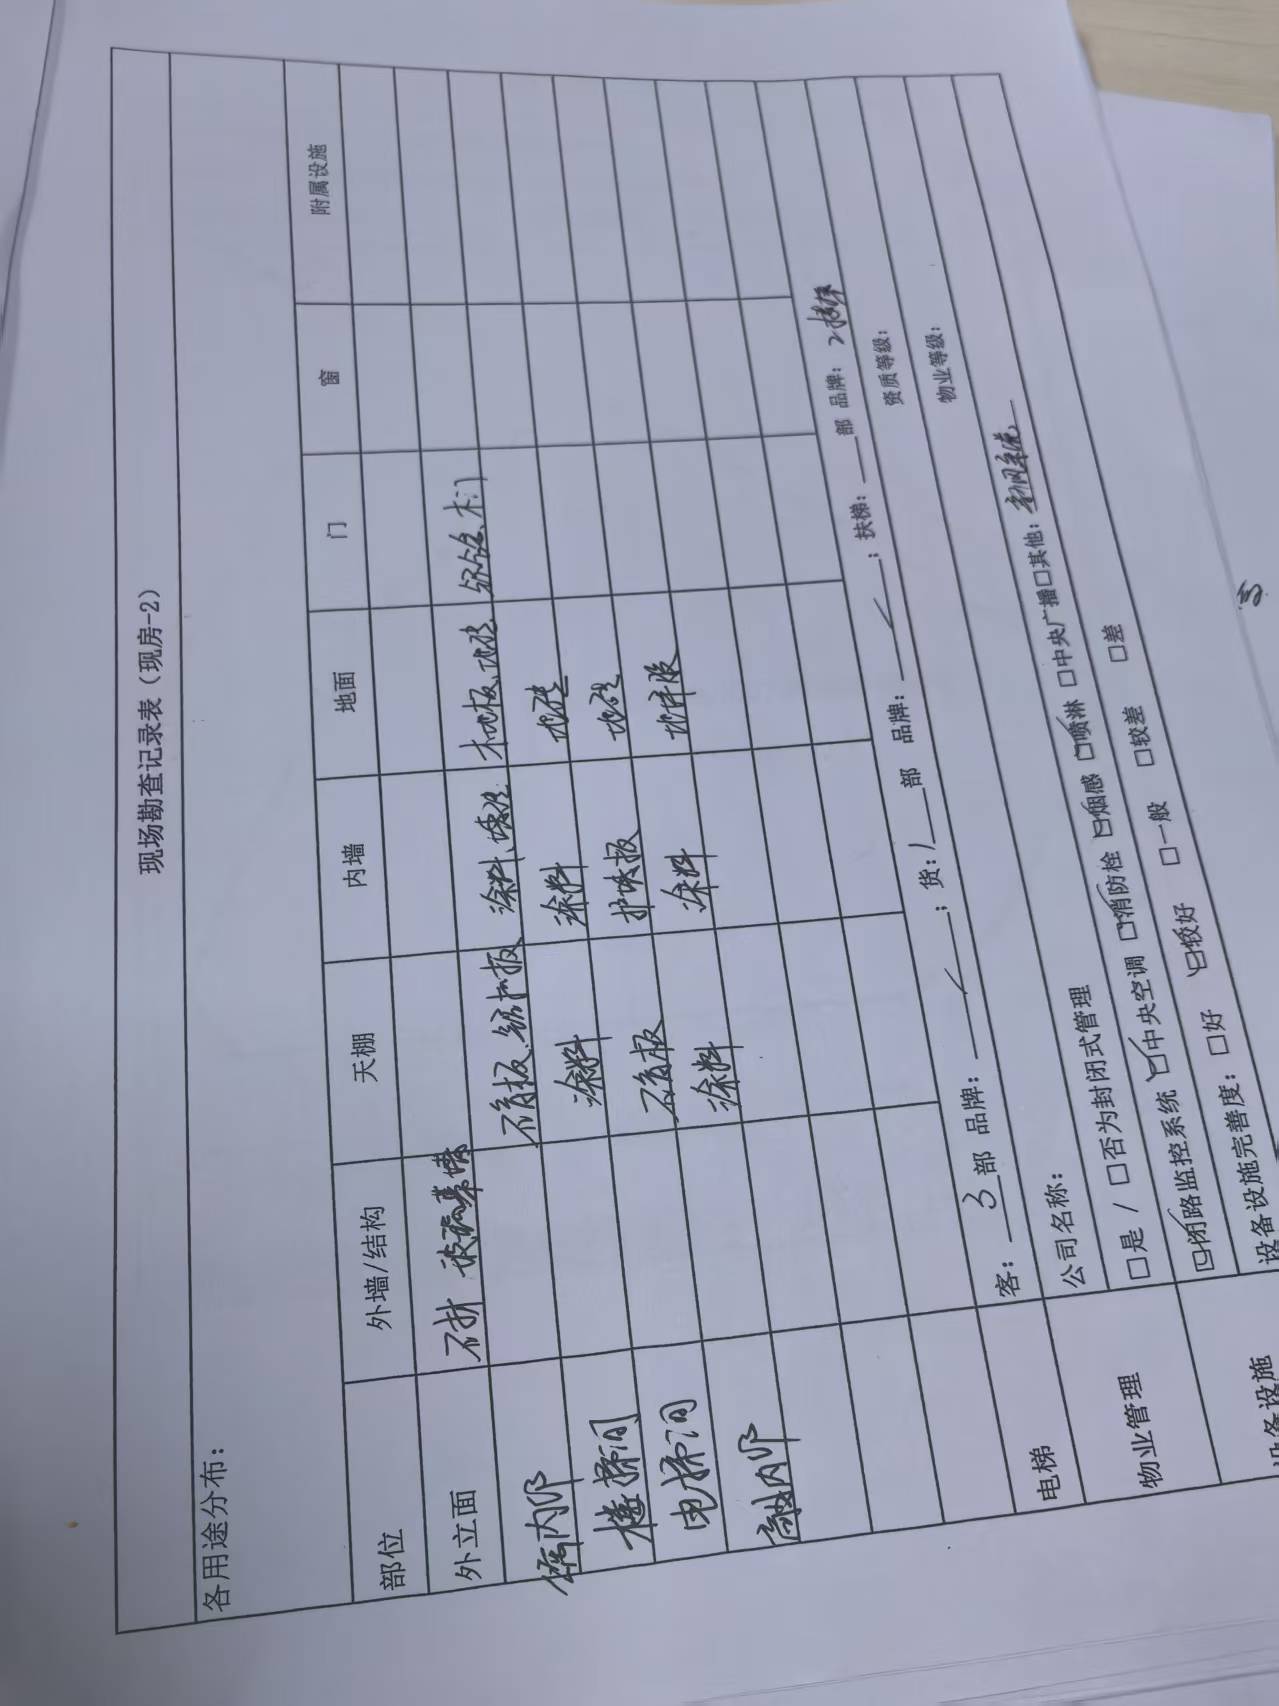 现场勘查记录表（现房-2）
各用途分布：
部位 外墙/结构 天棚 内墙 地面 门 窗 附属设施
外立面 石材 玻璃幕墙
内部 石膏板、铝扣板 涂料、墙砖 木地板、地砖 木门
楼梯间 涂料 涂料 地砖
电梯间 石膏板 地砖
内部 涂料 涂料
电梯 客：3部 品牌： / ；货：1部 品牌： / ；扶梯： 部 品牌：
物业管理 公司名称： 资质等级：
□是 / □否为封闭式管理 物业等级：
设备设施 ☑闭路监控系统 ☑中央空调 ☑消防栓 ☑烟感 ☑喷淋 □中央广播□其他：
设备设施完善度： □好 ☑较好 □一般 □较差 □差